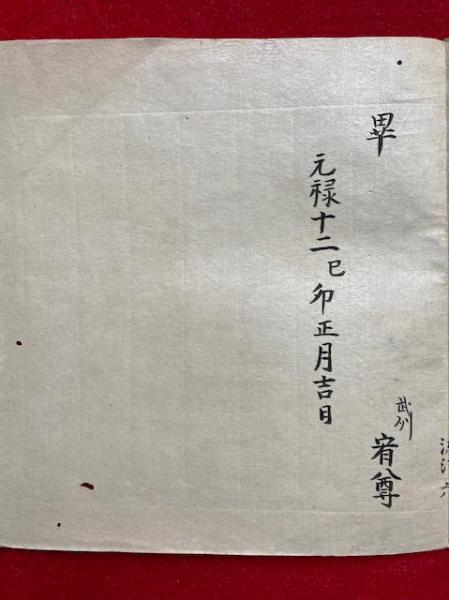 畢
武州 宥尊
元禄十二己卯正月吉日